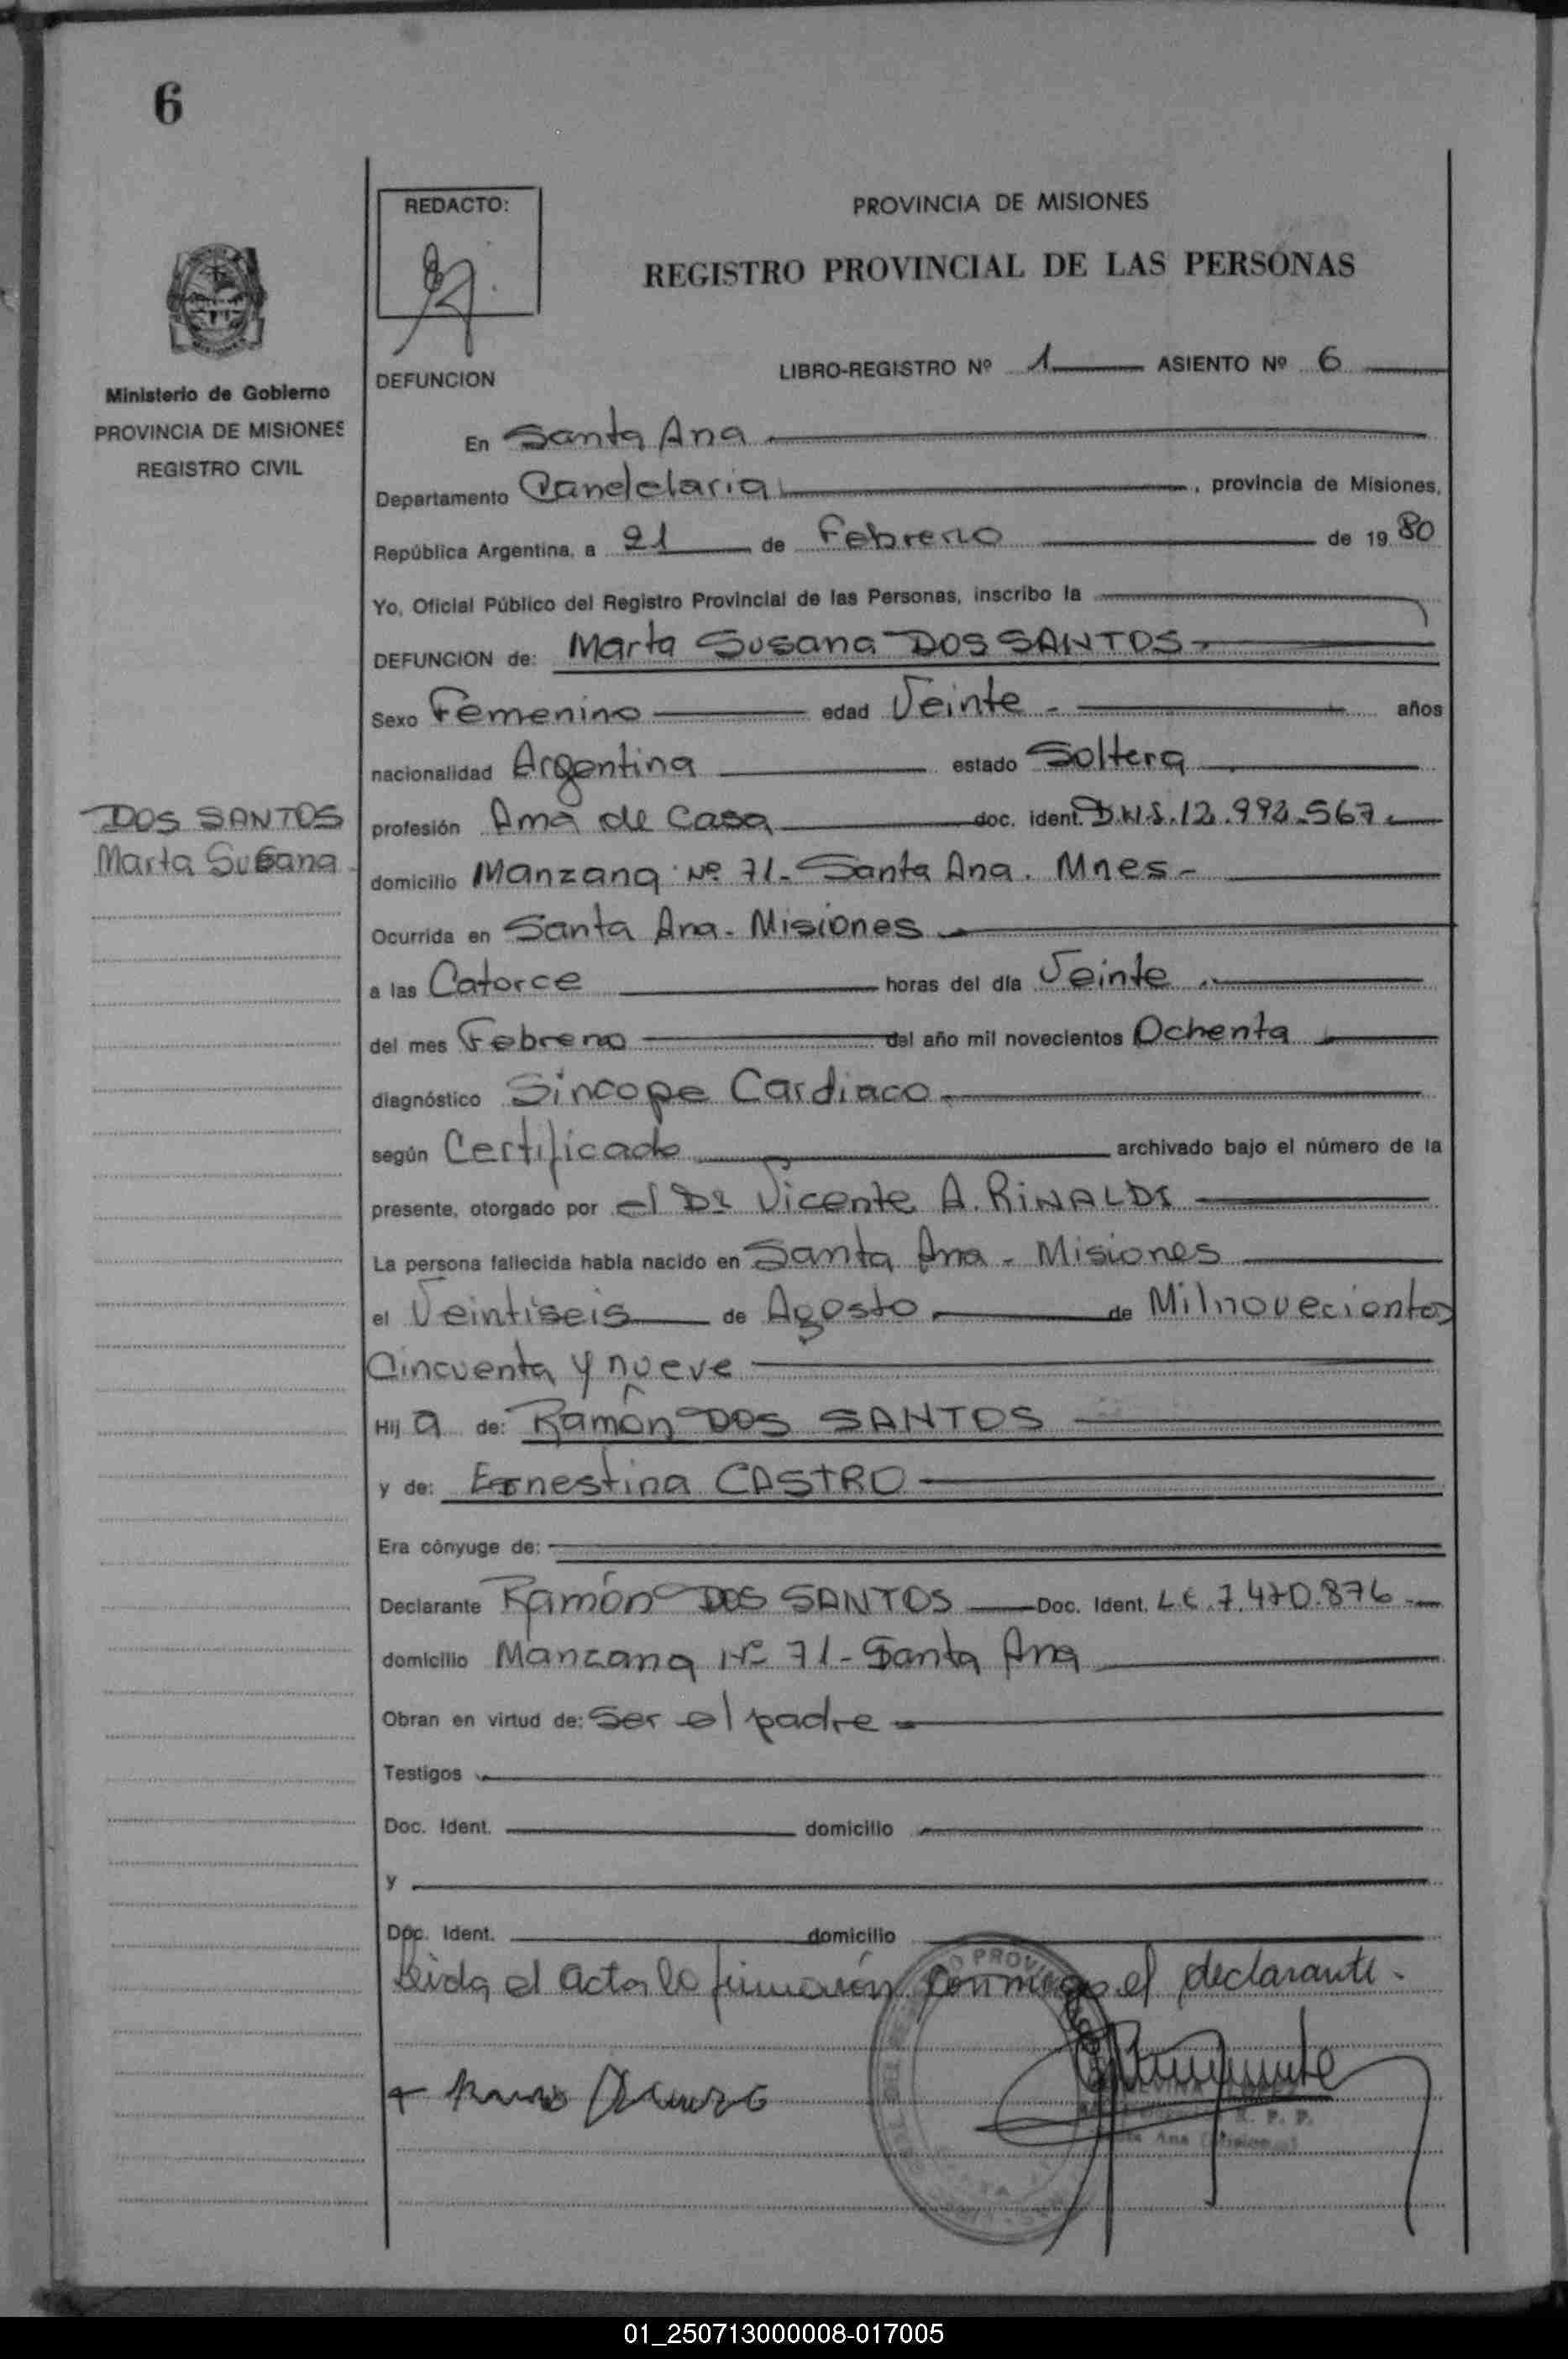 6
REDACTO:
PROVINCIA DE MISIONES
REGISTRO PROVINCIAL DE LAS PERSONAS
Ministerio de Gobierno
PROVINCIA DE MISIONES
REGISTRO CIVIL
DEFUNCION
LIBRO-REGISTRO Nº 1 ASIENTO Nº 6
En Santa Ana
Departamento Candelaria, provincia de Misiones,
República Argentina, a 21 de Febrero de 1980
Yo, Oficial Público del Registro Provincial de las Personas, inscribo la
DEFUNCION de: Marta Susana DOS SANTOS
Sexo Femenino edad Veinte años
nacionalidad Argentina estado Soltera
DOS SANTOS
Marta Susana
profesión Ama de Casa doc. ident. D.N.I. 12.992.567
domicilio Manzana Nº 71 - Santa Ana. Mnes -
Ocurrida en Santa Ana - Misiones
a las Catorce horas del día Veinte
del mes Febrero del año mil novecientos Ochenta
diagnóstico Sincope Cardiaco
según Certificado archivado bajo el número de la
presente, otorgado por el Dr Vicente A. RINALDI
La persona fallecida había nacido en Santa Ana - Misiones
el Veintiseis de Agosto de Milnovecientos
Cincuenta y nueve
Hija de: Ramón DOS SANTOS
y de: Ernestina CASTRO
Era cónyuge de:
Declarante Ramón DOS SANTOS Doc. Ident. L.E. 7.470.876
domicilio Manzana Nº 71 - Santa Ana
Obran en virtud de: Ser el padre
Testigos
Doc. Ident. domicilio
y
Doc. Ident. domicilio
Leida el acta la firmarón conmigo el declarante.
R. P. P.
Ana (Misiones)
01_250713000008-017005